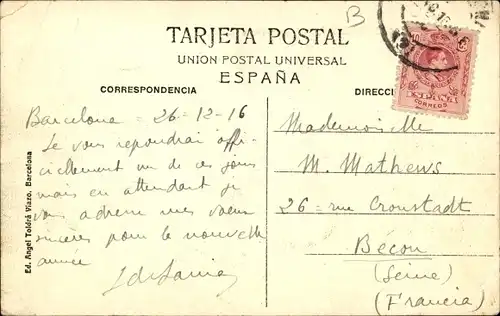 B
TARJETA POSTAL
UNION POSTAL UNIVERSAL
ESPAÑA
CORRESPONDENCIA
DIRECCI
ESPAÑA
CORREOS
Barcelona = 26-12-16
Je vous repondrai offi-
ciellement un de ces jours
mais en attendant je
vous adresse mes voeux
sincères pour la nouvelle
année
Mademoiselle
M. Mathews
26 = rue Cronstadt
Bécon
(Seine)
(Francia)
Ed. Angel Toldrá Viazo. Barcelona